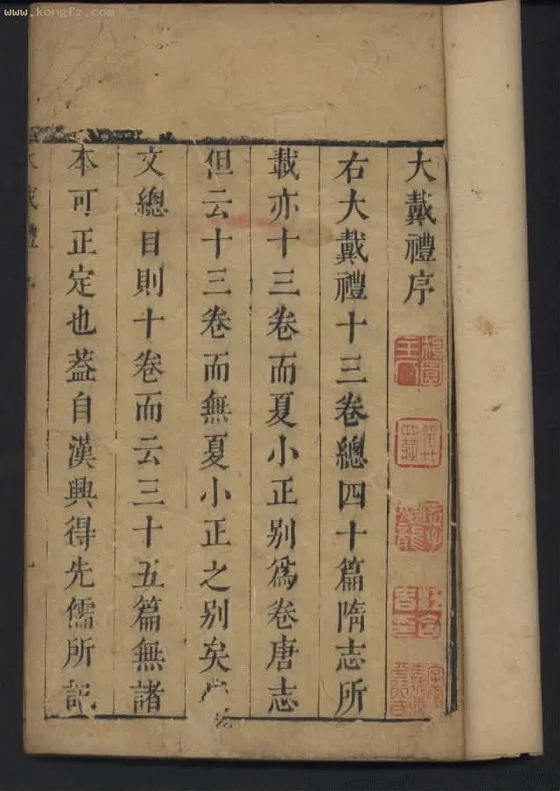 www.kongfz.com
大戴禮序
右大戴禮十三卷總四十篇隋志所
載亦十三卷而夏小正别爲卷唐志
但云十三卷而無夏小正之别矣
文總目則十卷而云三十五篇無諸
本可正定也葢自漢興得先儒所記